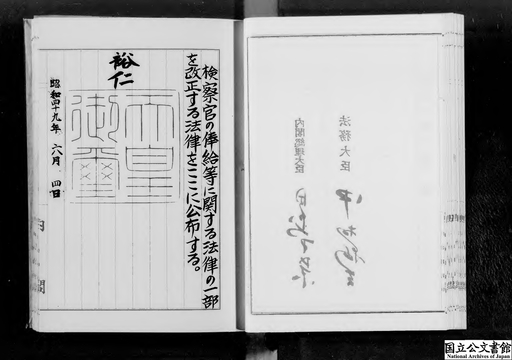 検察官の俸給等に関する法律の一部
を改正する法律をここに公布する。
裕仁
天皇
御璽
昭和四十九年 六月 四日
内閣
法務大臣
内閣総理大臣
国立公文書館
National Archives of Japan